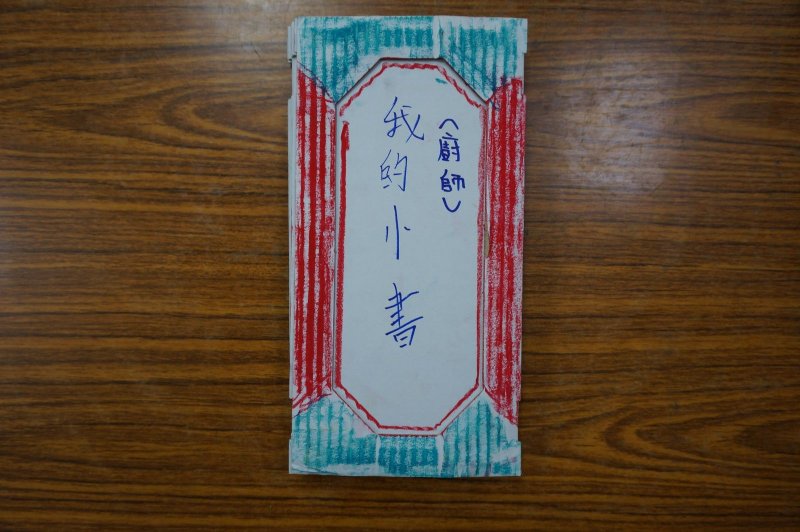 (廚師)
我的小書